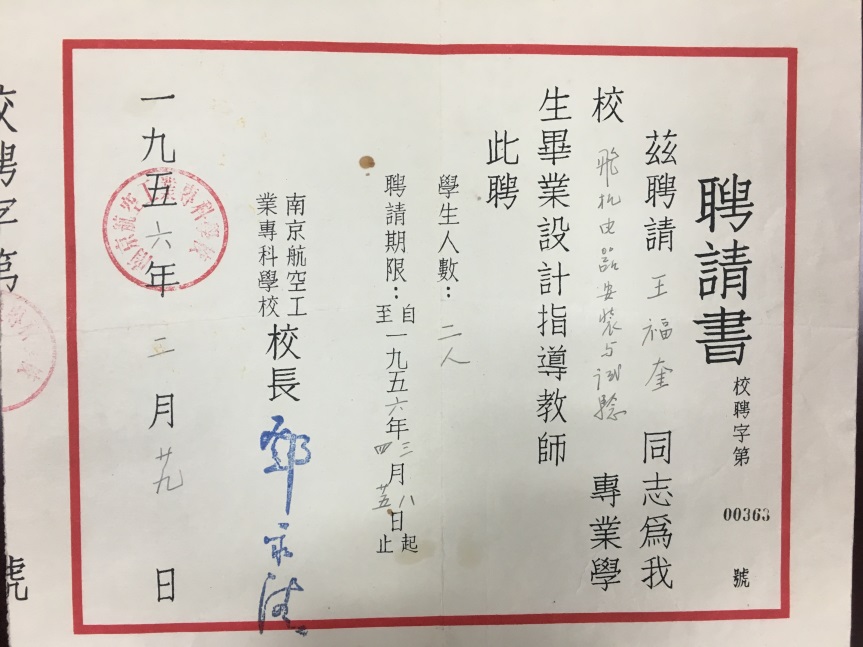 聘請書
校聘字第 00363 號
茲聘請 王福奎 同志爲我
校 飛机电器安装与试驗 專業學
生畢業設計指導教師
此聘
學生人數：二人
聘請期限：自一九五六年三月八日起
至四月廿五日止
南京航空工業專科學校 校長
一九五六年二月廿九日
南京航空工業專科學校
校聘字第
號